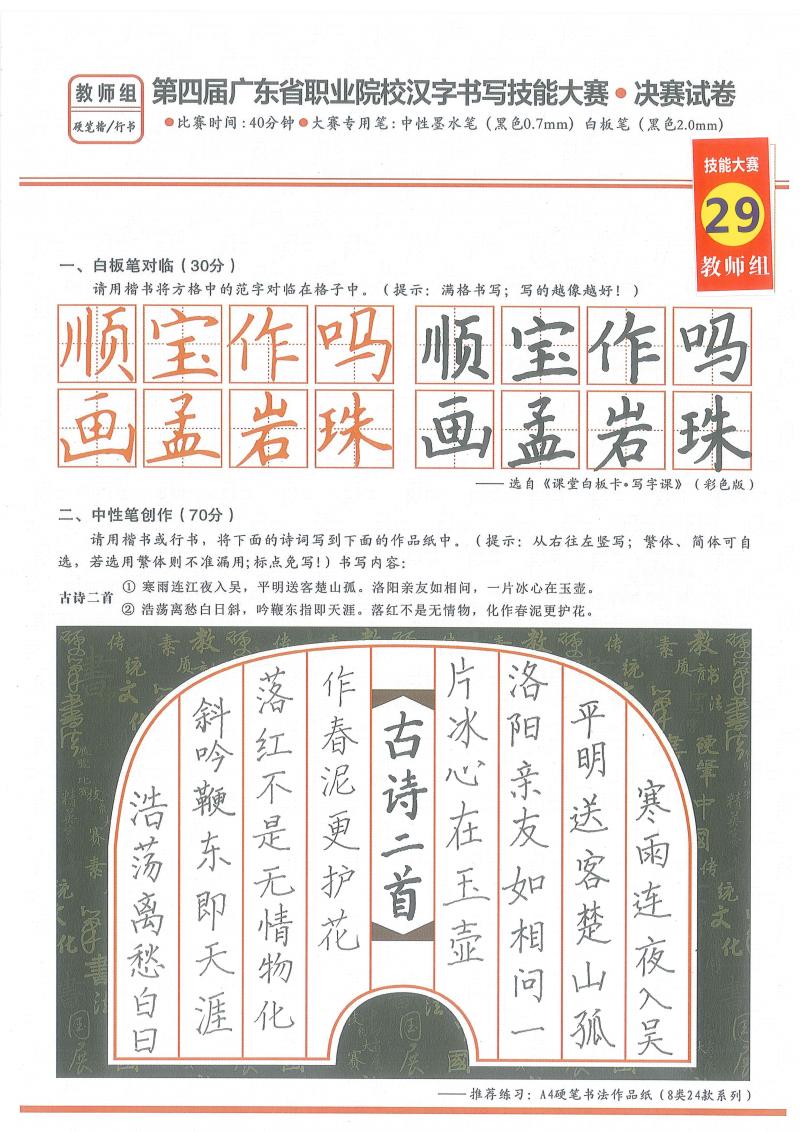 教师组
硬笔楷/行书
第四届广东省职业院校汉字书写技能大赛•决赛试卷
●比赛时间:40分钟●大赛专用笔:中性墨水笔(黑色0.7mm) 白板笔(黑色2.0mm)
技能大赛
29
教师组
一、白板笔对临(30分)
请用楷书将方格中的范字对临在格子中。(提示:满格书写;写的越像越好!)
顺宝作吗 顺宝作吗
画孟岩珠 画孟岩珠
——选自《课堂白板卡•写字课》(彩色版)
二、中性笔创作(70分)
请用楷书或行书,将下面的诗词写到下面的作品纸中。(提示:从右往左竖写;繁体、简体可自
选,若选用繁体则不准漏用;标点免写!)书写内容:
古诗二首
① 寒雨连江夜入吴,平明送客楚山孤。洛阳亲友如相问,一片冰心在玉壶。
② 浩荡离愁白日斜,吟鞭东指即天涯。落红不是无情物,化作春泥更护花。
寒雨连夜入吴
平明送客楚山孤
洛阳亲友如相问一
片冰心在玉壶
古诗二首
作春泥更护花
落红不是无情物化
斜吟鞭东即天涯
浩荡离愁白日
——推荐练习:A4硬笔书法作品纸(8类24款系列)